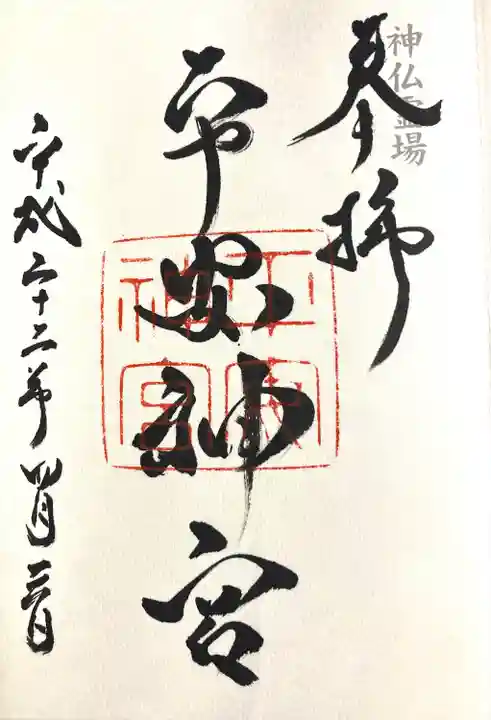 神仏霊場
奉拝
平安神宮
平安神宮
平成二十二年四月三日